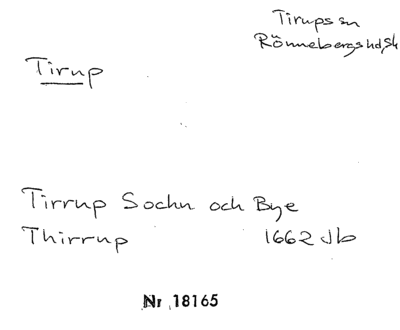 Tirups sn
Rönnebergs hd, Sk
Tirup
Tirrup Sochn och Bye
Thirrup 1662 Jb
Nr 18165